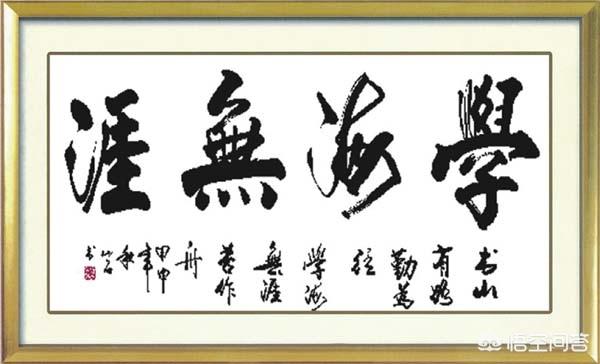 學海無涯
书山
有路
勤為
径
學海
無涯
苦作
舟
甲申
年
秋
书
悟空问答